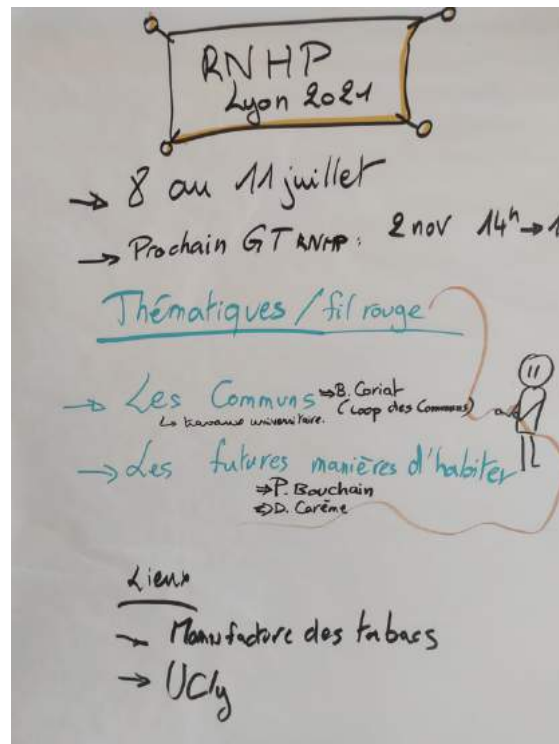 RNHP
Lyon 2021
→ 8 au 11 juillet
→ Prochain GT RNHP : 2 nov 14h → 1
Thématiques / fil rouge
→ Les Communs → B. Coriat
(Coop des Communs)
↳ travaux universitaire.
→ Les futures manières d'habiter
⇒ P. Bouchain
⇒ D. Carême
Lieux
→ Manufacture des tabacs
→ UCly